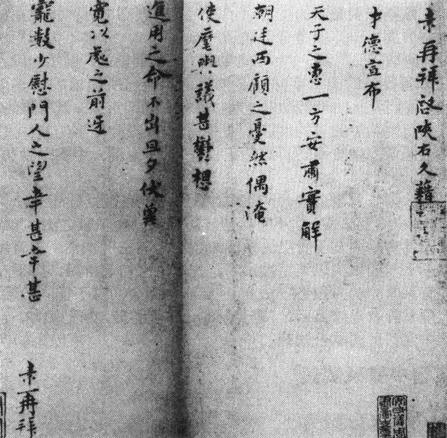 某再拜啓陝右久藉
才德宣布
天子之惠一方安肅實解
朝廷西顧之憂然偶淹
使麾輿議甚鬱想
進用之命不出旦夕伏冀
寬以處之前迓
寵數少慰門人之望幸甚幸甚
某再拜